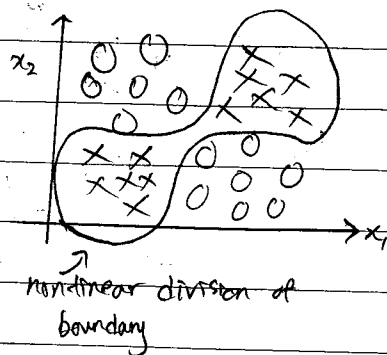 x₂
x₁
nonlinear division of
boundary